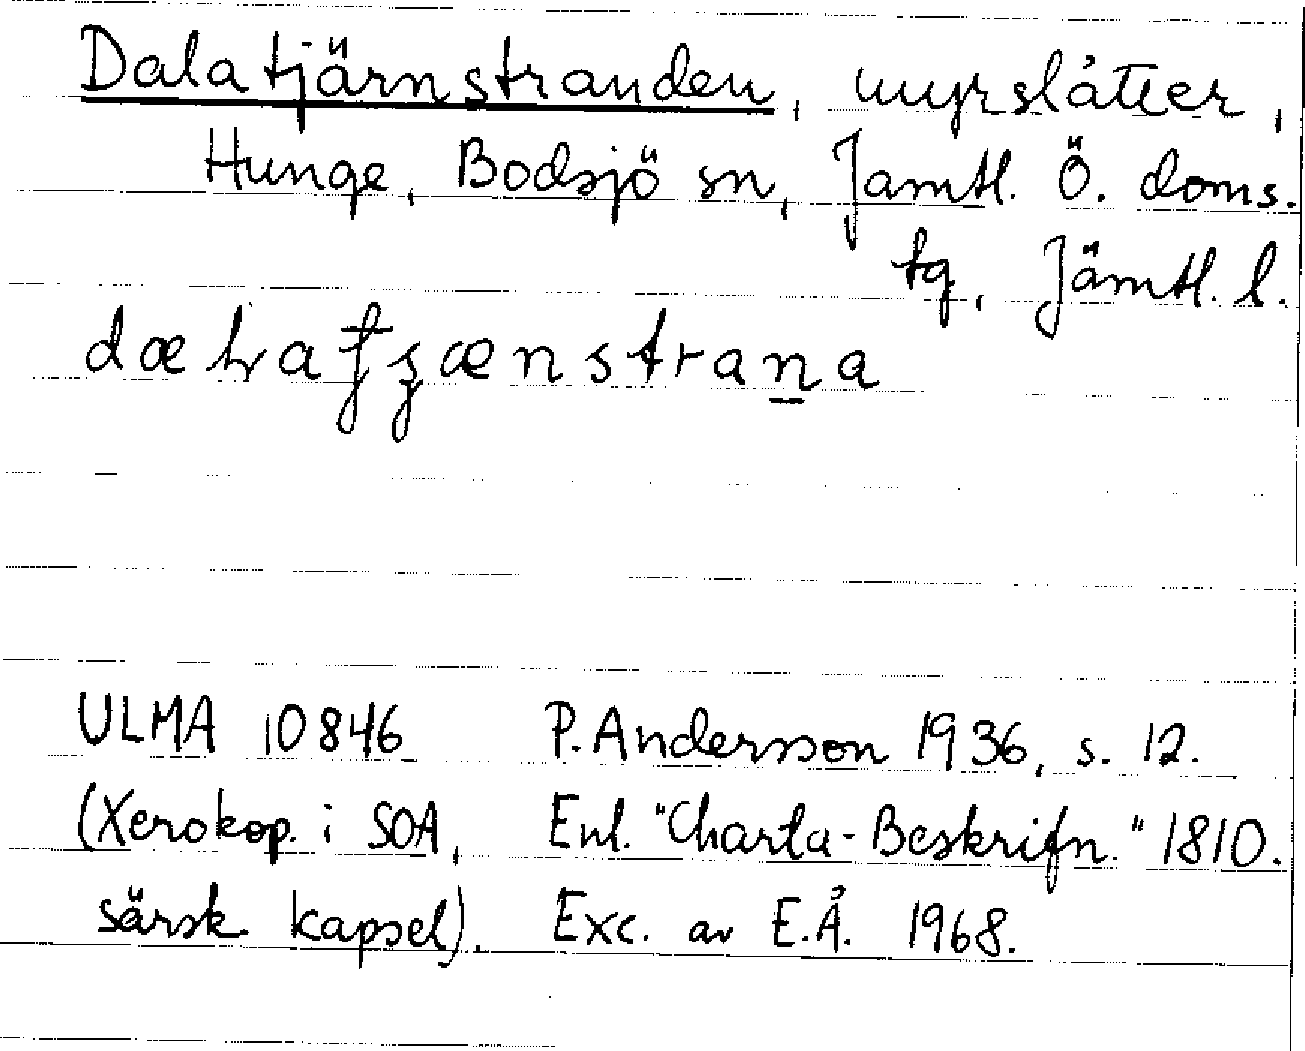 Dalatjärnstranden, myrslåtter,
Hunge, Bodsjö sn, Jämtl. Ö. doms.
tg, Jämtl. l.
ULMA 10846 P. Andersson 1936, s. 12.
(Xerokop. i SOA, Enl. "Charta-Beskrifn." 1810.
särsk. kapsel). Exc. av E.Å. 1968.